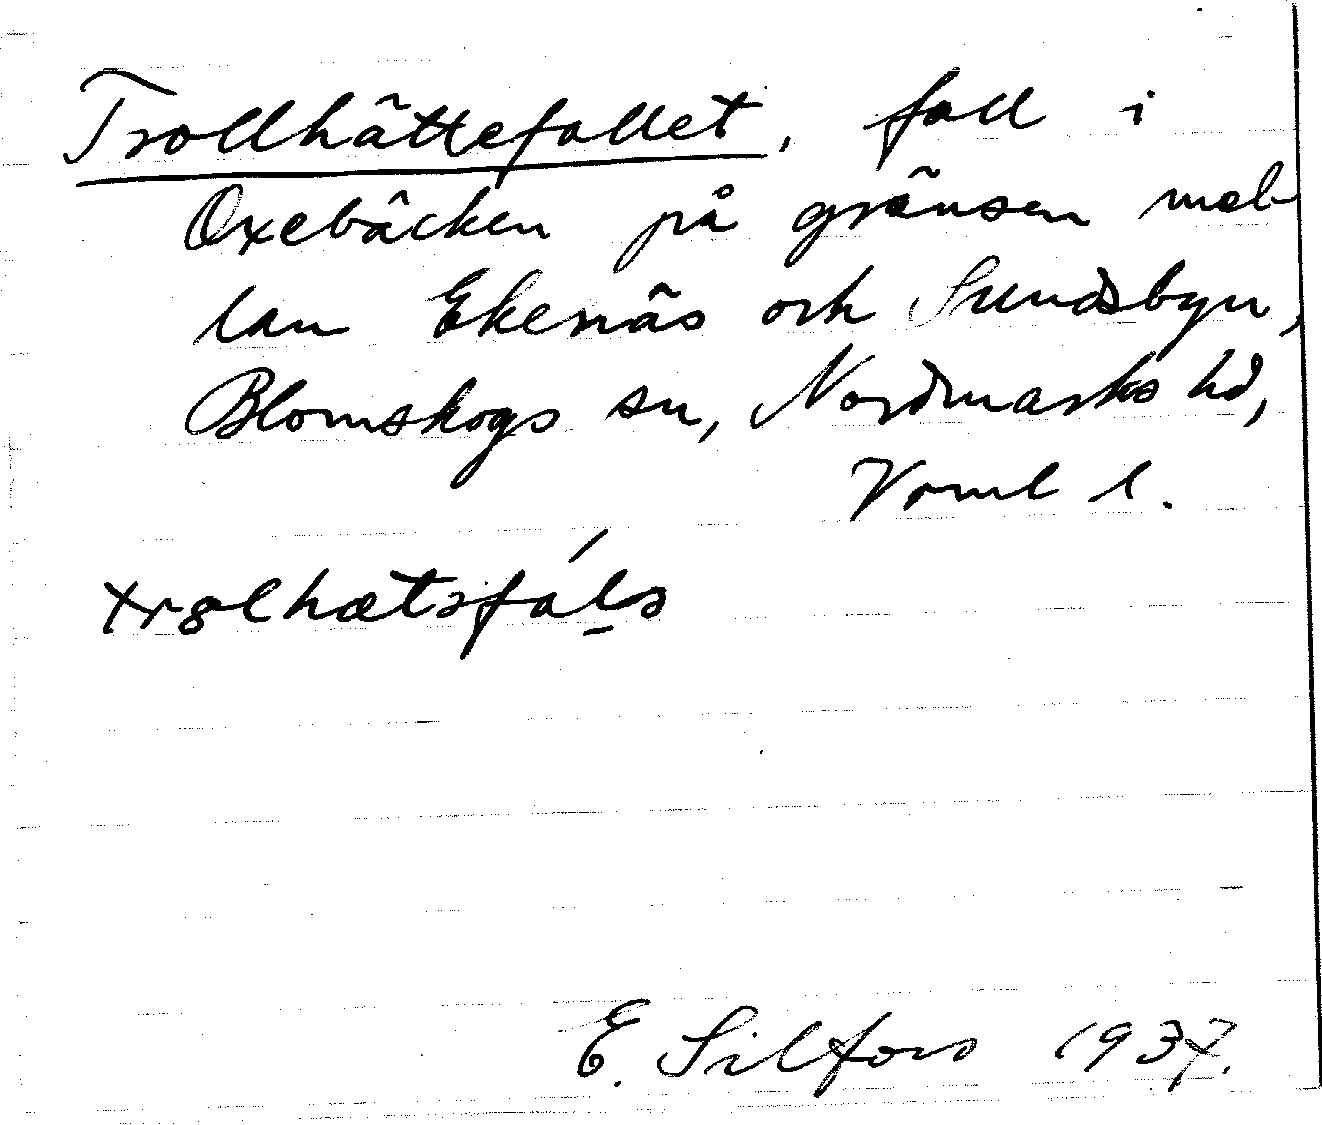 Trollhättefallet, fall i
Oxebäcken på gränsen mel-
lan Ekenäs och Sundsbyn,
Blomskogs sn, Nordmarks hd,
Vrml l.
E. Silfors 1937.